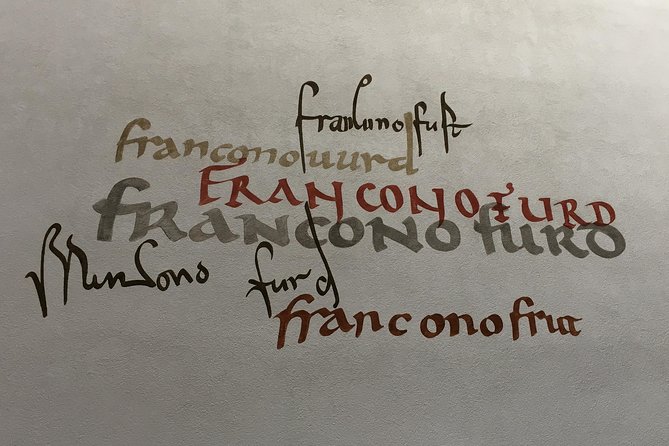 franconofurt
franconouurd
FRANCONOFURD
francono furd
francono furd
franconofrut